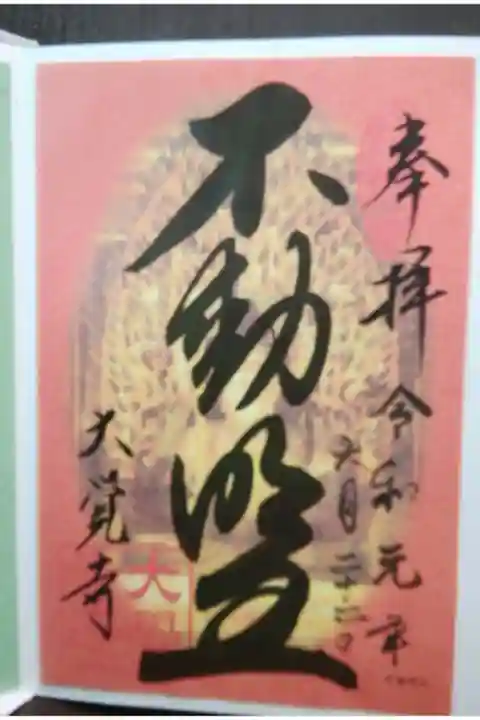 奉拝 令和元年
六月二十
不動明王
大覚寺
大